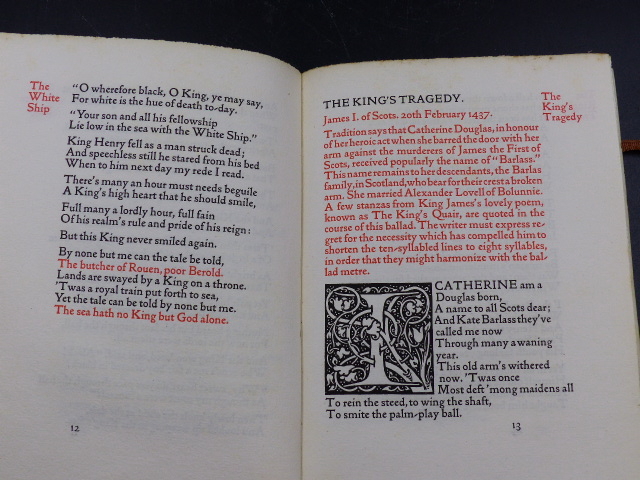 The
White
Ship
"O wherefore black, O King, ye may say,
For white is the hue of death to-day.
"Your son and all his fellowship
Lie low in the sea with the White Ship."
King Henry fell as a man struck dead;
And speechless still he stared from his bed
When to him next day my rede I read.
There's many an hour must needs beguile
A King's high heart that he should smile,
Full many a lordly hour, full fain
Of his realm's rule and pride of his reign:
But this King never smiled again.
By none but me can the tale be told,
The butcher of Rouen, poor Berold.
Lands are swayed by a King on a throne.
'Twas a royal train put forth to sea,
Yet the tale can be told by none but me.
The sea hath no King but God alone.
12
THE KING'S TRAGEDY.
The
King's
Tragedy
James I. of Scots. 20th February 1437.
Tradition says that Catherine Douglas, in honour
of her heroic act when she barred the door with her
arm against the murderers of James the First of
Scots, received popularly the name of "Barlass."
This name remains to her descendants, the Barlas
family, in Scotland, who bear for their crest a broken
arm. She married Alexander Lovell of Bolunnie.
A few stanzas from King James's lovely poem,
known as The King's Quair, are quoted in the
course of this ballad. The writer must express re-
gret for the necessity which has compelled him to
shorten the ten-syllabled lines to eight syllables,
in order that they might harmonize with the bal-
lad metre.
I CATHERINE am a
Douglas born,
A name to all Scots dear;
And Kate Barlass they've
called me now
Through many a waning
year.
This old arm's withered
now. 'Twas once
Most deft 'mong maidens all
To rein the steed, to wing the shaft,
To smite the palm-play ball.
13